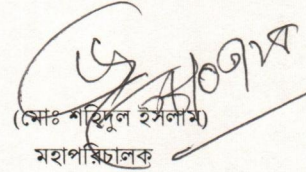 (মোঃ শহিদুল ইসলাম)
মহাপরিচালক